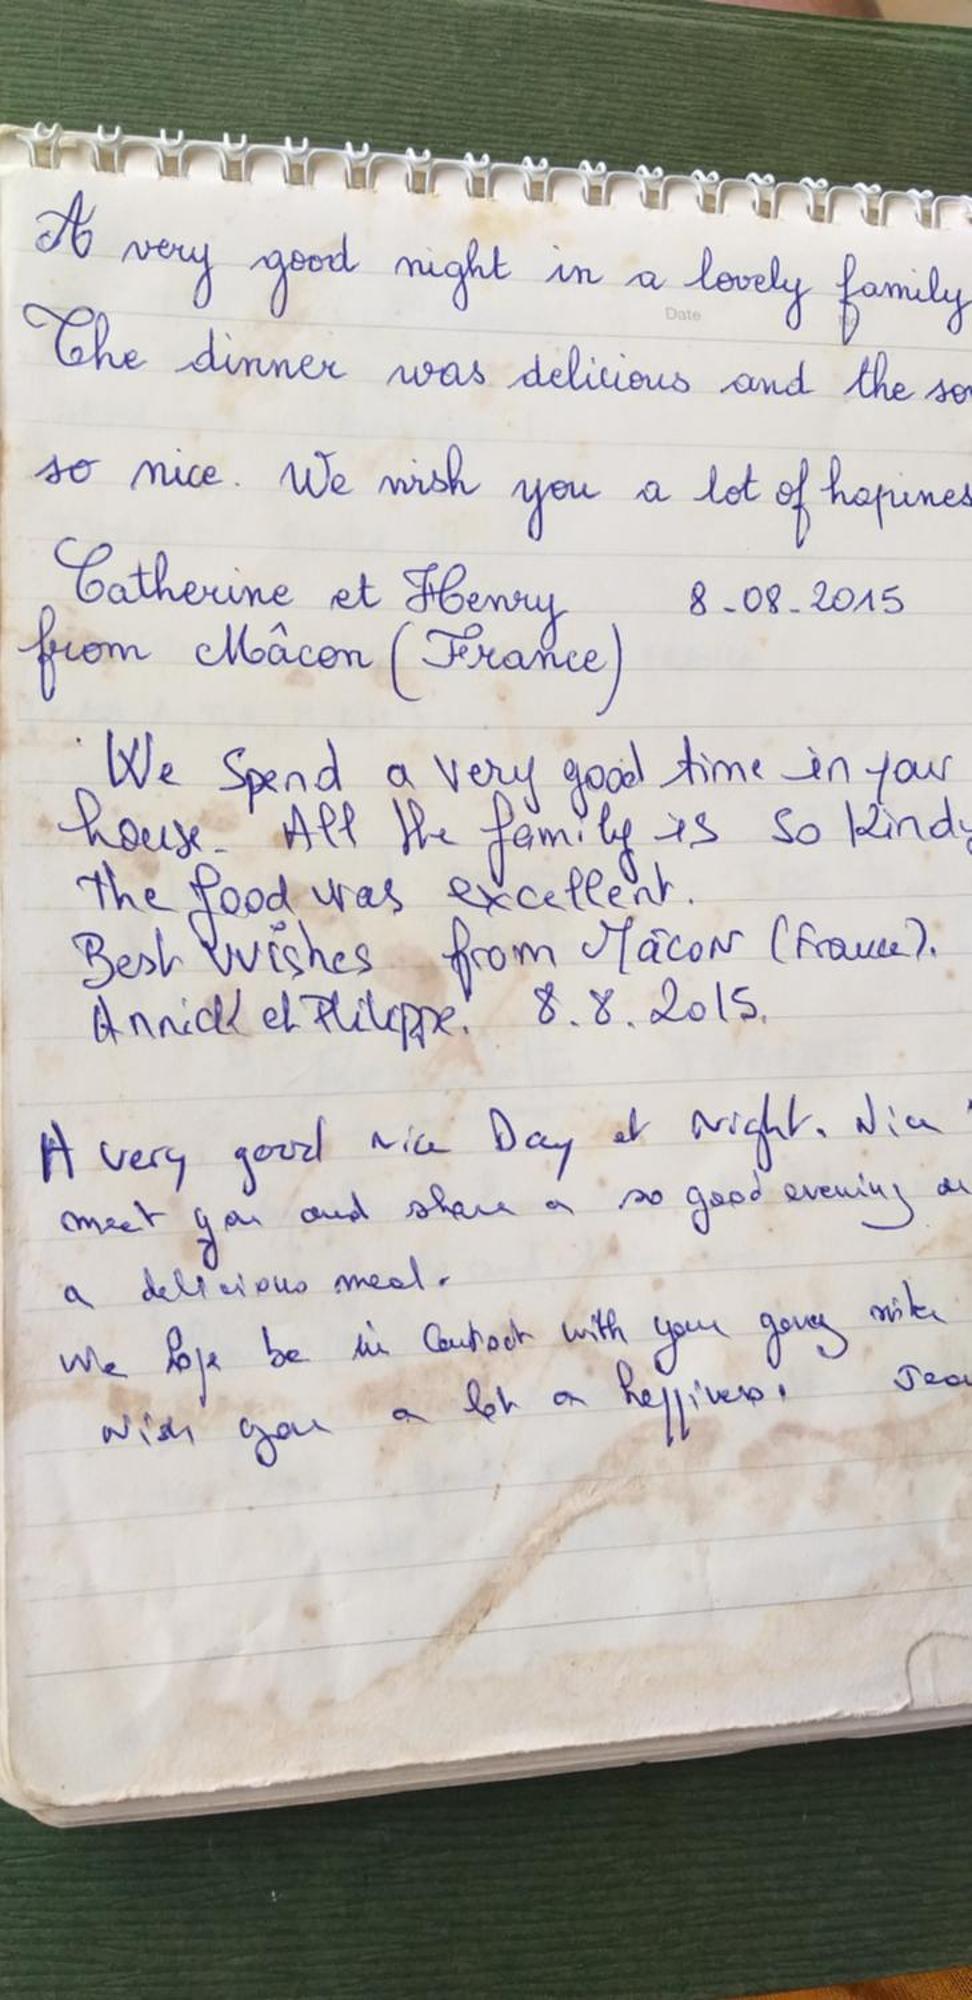 A very good night in a lovely family
Date
The dinner was delicious and the
so nice. We wish you a lot of hapines
Catherine et Henry 8-08-2015
from Mâcon (France)
We Spend a very good time in your
house. All the family is so kindy
the food was excellent.
Best Wishes from Mâcon (France).
Annick et Philippe. 8.8.2015.
A very good nice Day et night. Nice
meet you and share a so good evening
a delicious meal.
We hope be in Contact with your
wish you a lot a happiness.